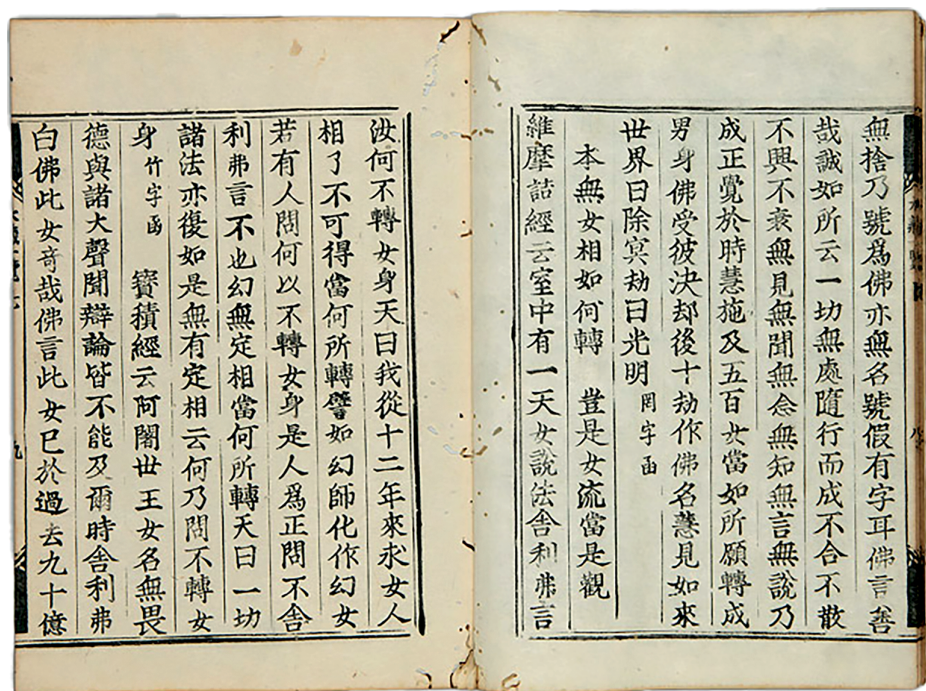 無捨乃號爲佛亦無名號假有字耳佛言善
哉誠如所云一切無處隨行而成不合不散
不興不衰無見無聞無念無知無言無說乃
成正覺於時慧施及五百女當如所願轉成
男身佛受彼決却後十劫作佛名慧見如來
世界曰除冥劫曰光明 罔字函
本無女相如何轉 豈是女流當是觀
維摩詰經云室中有一天女說法舍利弗言
汝何不轉女身天曰我從十二年來求女人
相了不可得當何所轉譬如幻師化作幻女
若有人問何以不轉女身是人爲正問不舍
利弗言不也幻無定相當何所轉天曰一切
諸法亦復如是無有定相云何乃問不轉女
身 竹字函 寶積經云阿闍世王女名無畏
德與諸大聲聞辯論皆不能及爾時舍利弗
白佛此女奇哉佛言此女已於過去九十億
九